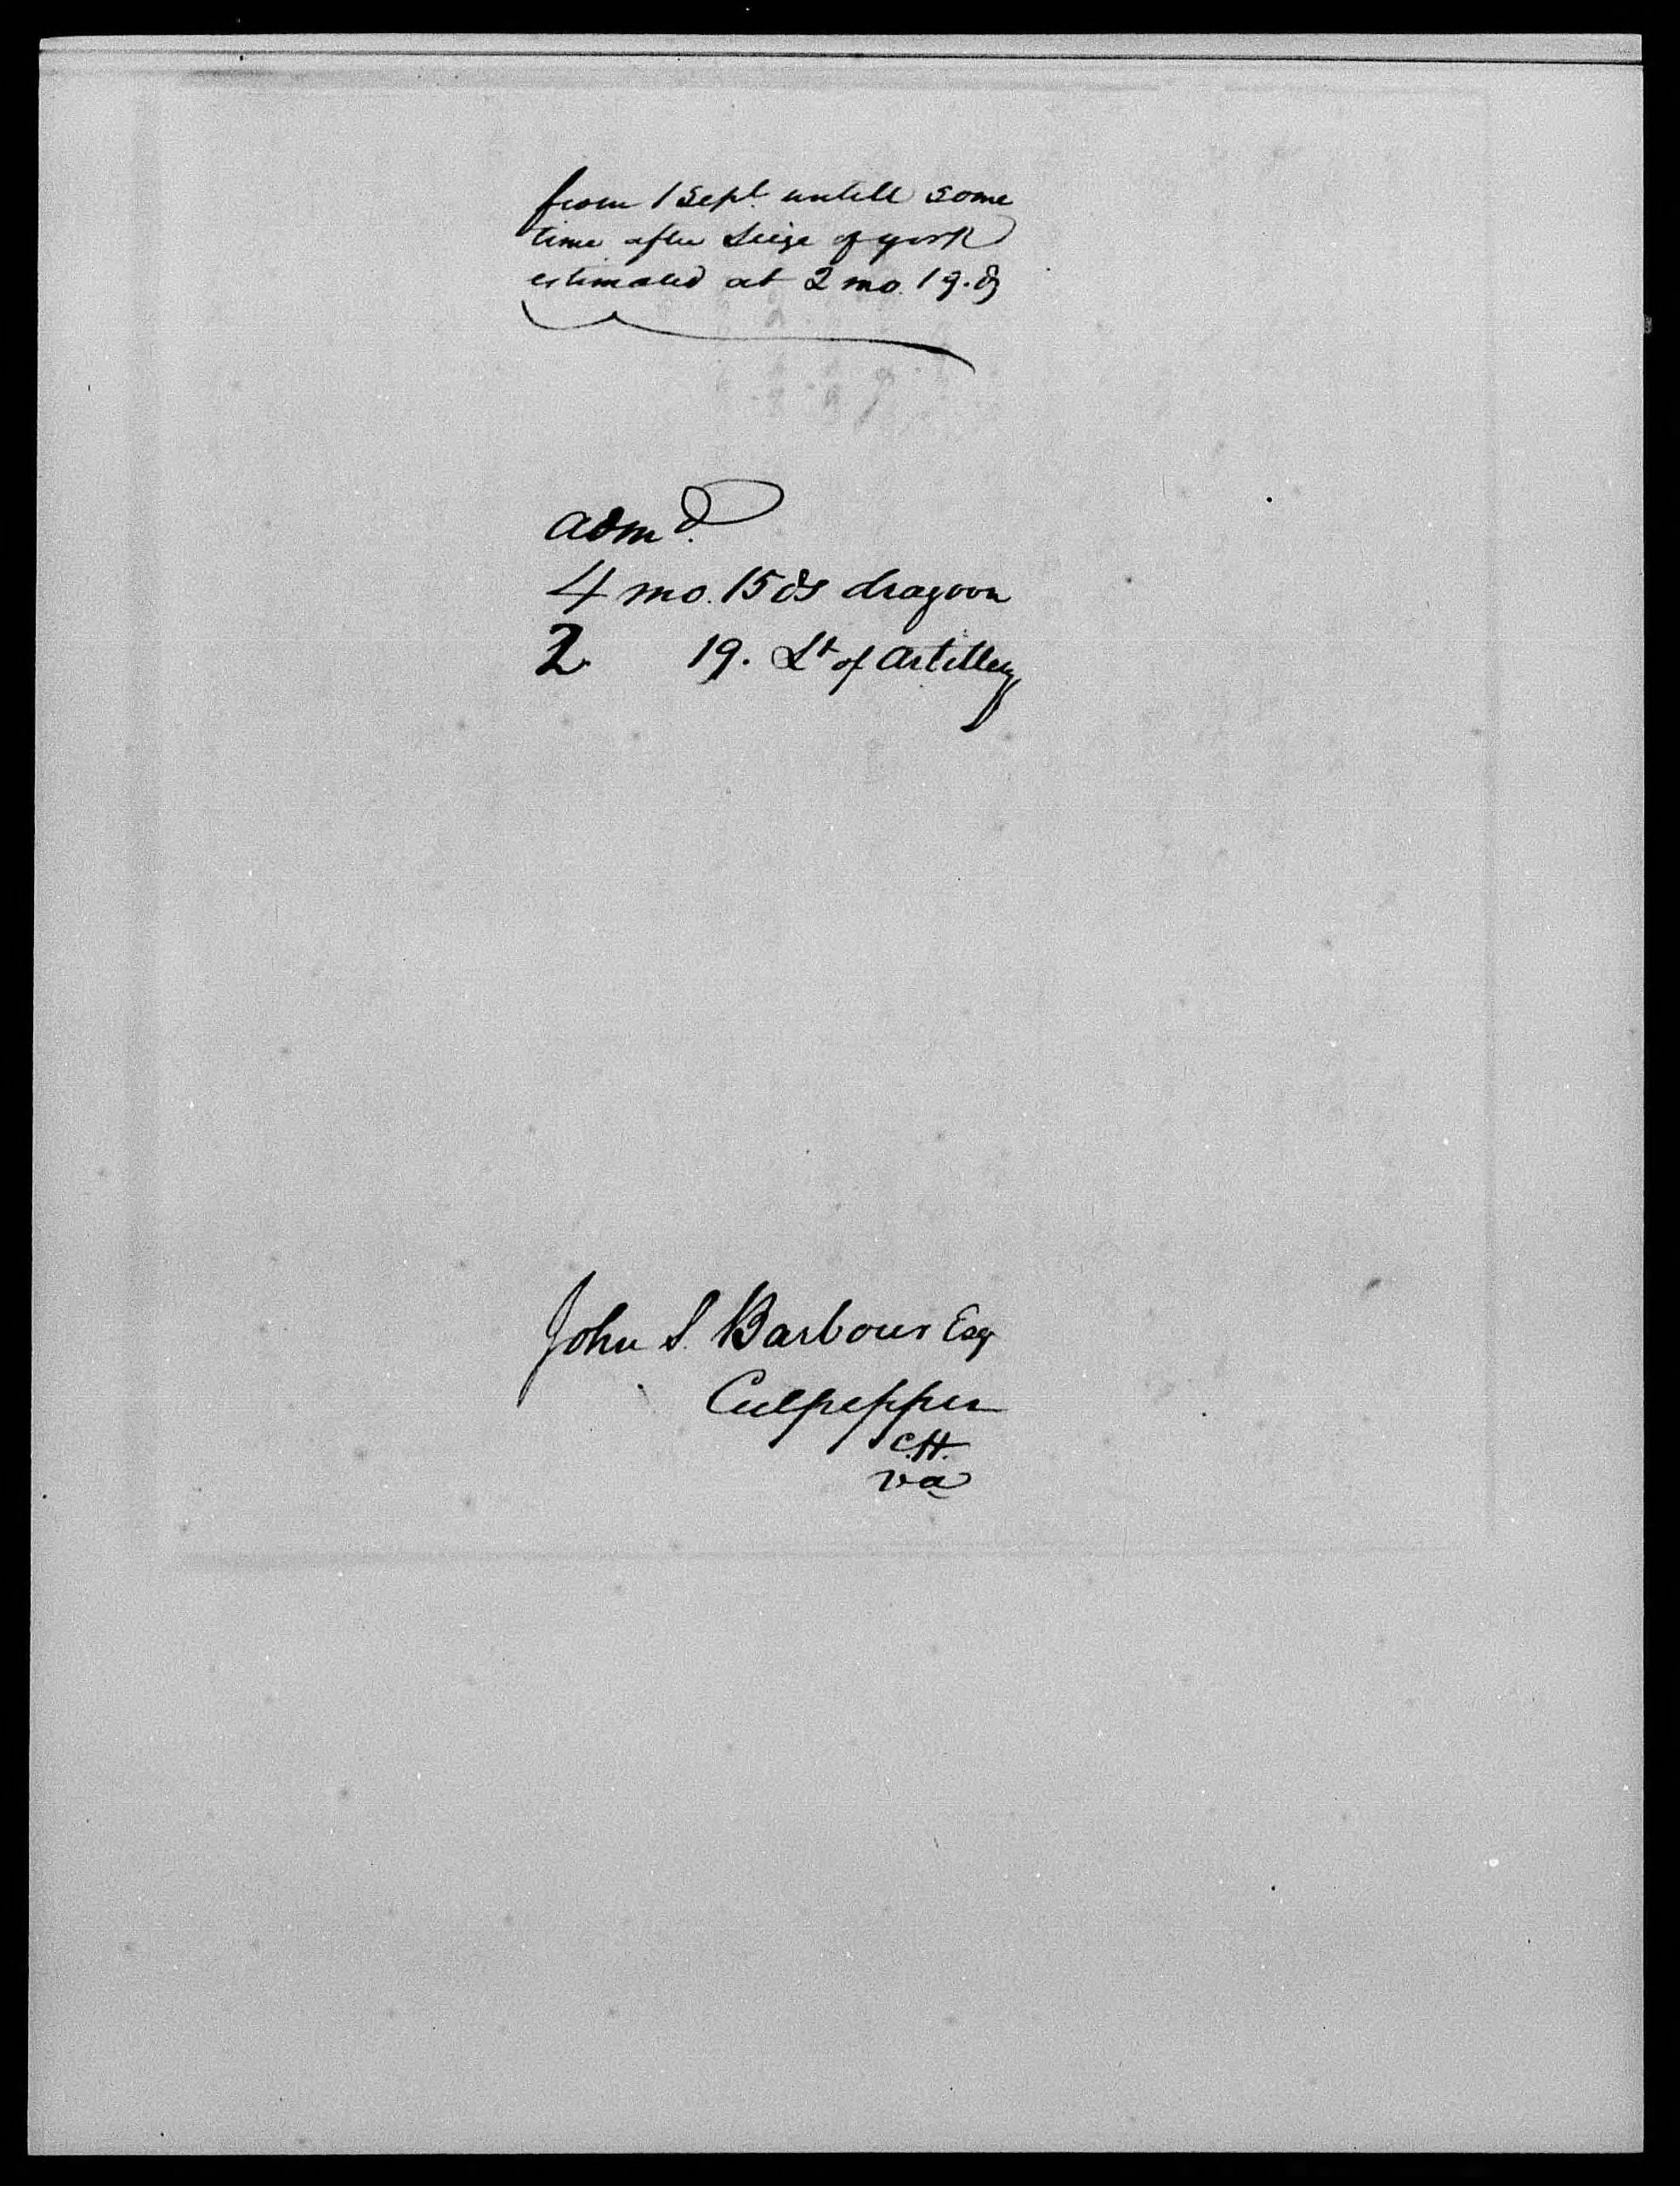 from 1 Sept. untill some
time after Seige of york
estimated at 2 mo. 19. ds
admd.
4 mo. 15 ds dragoon
2 19. Lt of Artillery
John S. Barbour Esq
Culpepper
C.H.
va